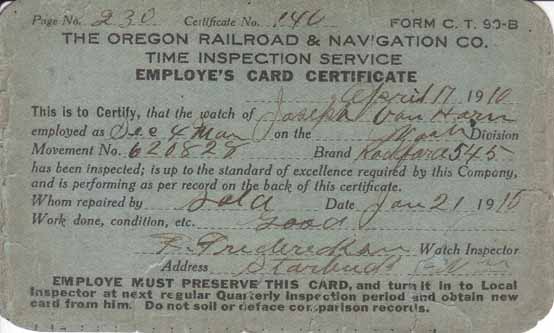 Page No. 230 Certificate No. 140 FORM C. T. 90-B
THE OREGON RAILROAD & NAVIGATION CO.
TIME INSPECTION SERVICE
EMPLOYE'S CARD CERTIFICATE
April 17 1910
This is to Certify, that the watch of Joseph Van Horn
employed as Sec 4 Man on the Division
Movement No. 620828 Brand Rockford 545
has been inspected; is up to the standard of excellence required by this Company,
and is performing as per record on the back of this certificate.
Whom repaired by Sold Date Jan 21 1910
Work done, condition, etc. Good
Watch Inspector
Address Starbuck
EMPLOYE MUST PRESERVE THIS CARD, and turn it in to Local
Inspector at next regular Quarterly inspection period and obtain new
card from him. Do not soil or deface comparison records.